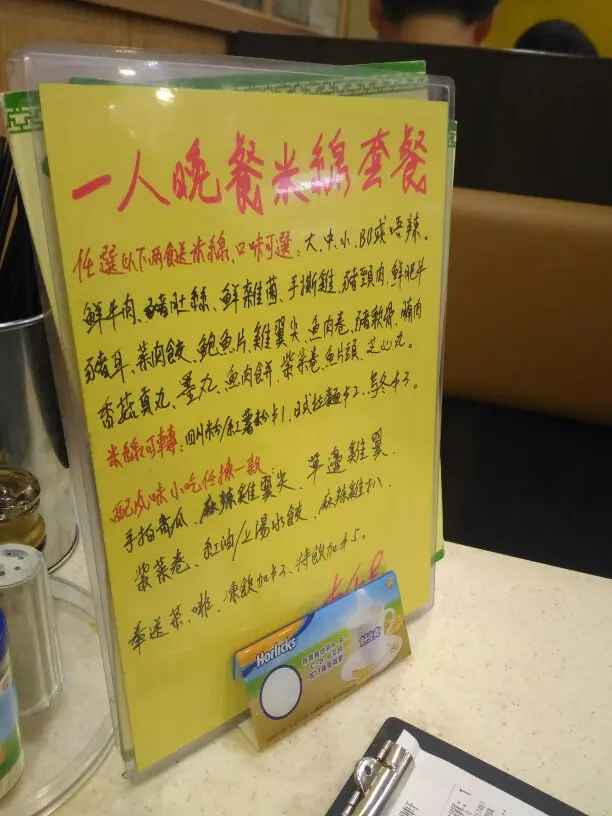 一人晚餐米線套餐
任選以下两餸送米線、口味可選：大、中、小、BB或唔辣。
鮮牛肉、豬肚絲、鮮雜菌、手撕雞、豬頸肉、鮮肥牛
豬耳、菜肉餃、鮑魚片、雞翼尖、魚肉卷、豬軟骨、腩肉
香菇貢丸、墨丸、魚肉餅、紫菜卷、魚片頭、芝心丸。
米線可轉：四川粉/紅薯粉+$1、日式拉麵+$2、烏冬+$3。
配风味小吃任揀一款
手拍青瓜、麻辣雞翼尖、單邊雞翼
紫菜卷、紅油/上湯水餃、麻辣雞扒
奉送茶、啡、凍飲加$3、特飲加$5。
Horlicks